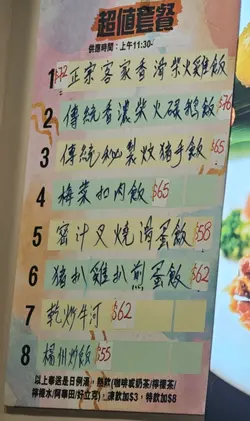 超值套餐
供應時間：上午11:30-
1 正宗客家香滑柴火雞飯 $72
2 傳統香濃柴火碌鵝飯 $76
3 傳統秘製炆豬手飯 $65
4 梅菜扣肉飯 $65
5 密汁叉燒滑蛋飯 $58
6 豬扒雞扒煎蛋飯 $62
7 乾炒牛河 $62
8 楊州炒飯 $55
以上奉送是日例湯，熱飲(咖啡或奶茶/檸檬茶/
檸檬水/阿華田/好立克)，凍飲加$3，特飲加$8